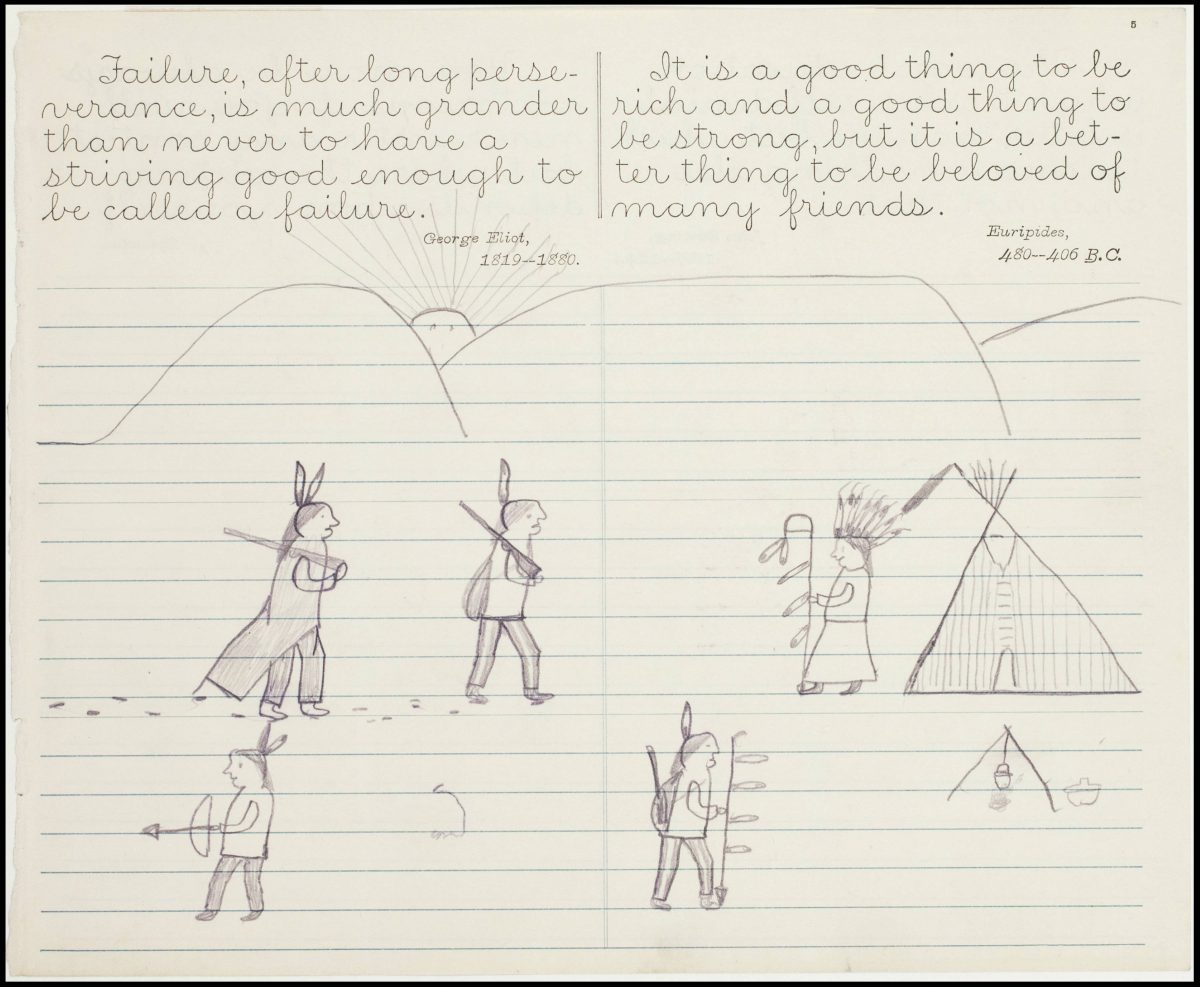 5
Failure, after long perse-
verance, is much grander
than never to have a
striving good enough to
be called a failure.
George Eliot,
1819--1880.
It is a good thing to be
rich and a good thing to
be strong, but it is a bet-
ter thing to be beloved of
many friends.
Euripides,
480--406 B.C.